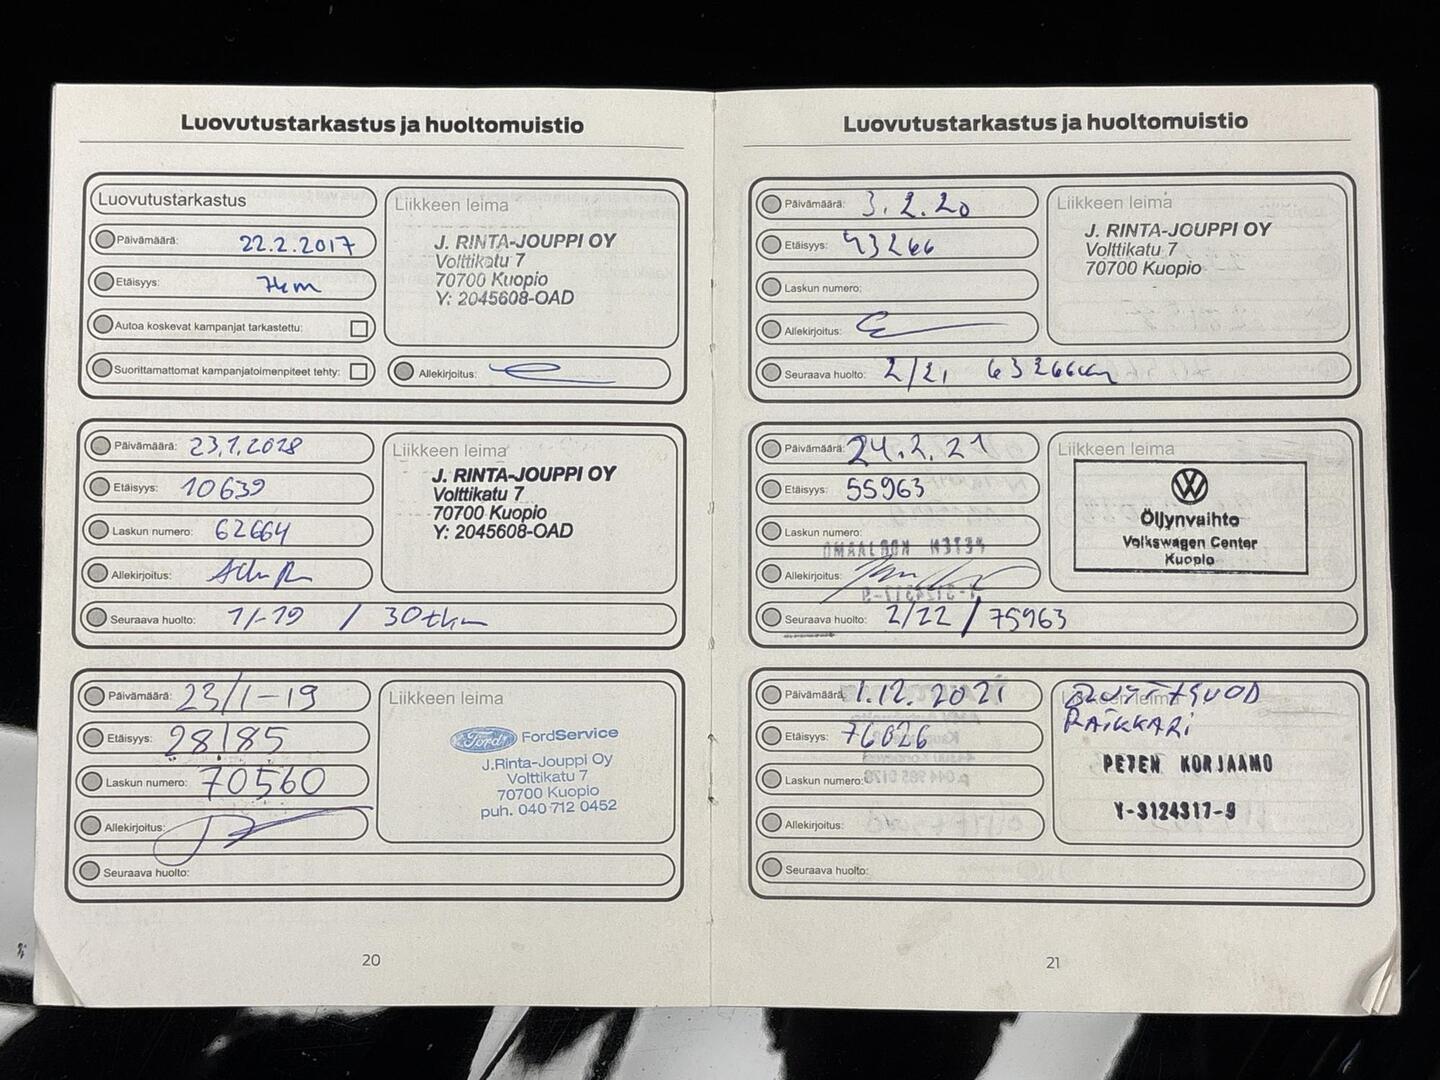 Luovutustarkastus ja huoltomuistio
Luovutustarkastus
Päivämäärä: 22.2.2017
Etäisyys: 7km
Autoa koskevat kampanjat tarkastettu:
Suorittamattomat kampanjatoimenpiteet tehty:
Liikkeen leima
J. RINTA-JOUPPI OY
Volttikatu 7
70700 Kuopio
Y: 2045608-OAD
Allekirjoitus:
Päivämäärä: 23.1.2018
Etäisyys: 10639
Laskun numero: 62664
Allekirjoitus:
Seuraava huolto: 1/-19 / 30tkm
Liikkeen leima
J. RINTA-JOUPPI OY
Volttikatu 7
70700 Kuopio
Y: 2045608-OAD
Päivämäärä: 23/1-19
Etäisyys: 28185
Laskun numero: 70560
Allekirjoitus:
Seuraava huolto:
Liikkeen leima
Ford FordService
J.Rinta-Jouppi Oy
Volttikatu 7
70700 Kuopio
puh. 040 712 0452
20
Luovutustarkastus ja huoltomuistio
Päivämäärä: 3.2.20
Etäisyys: 43266
Laskun numero:
Allekirjoitus:
Seuraava huolto: 2/21 63266km
Liikkeen leima
J. RINTA-JOUPPI OY
Volttikatu 7
70700 Kuopio
Päivämäärä: 24.2.21
Etäisyys: 55963
Laskun numero:
Allekirjoitus:
Seuraava huolto: 2/22 / 75963
Liikkeen leima
Öljynvaihto
Volkswagen Center
Kuopio
Päivämäärä: 1.12.2021
Etäisyys: 76026
Laskun numero:
Allekirjoitus:
Seuraava huolto:
Liikkeen leima
RÄIKKÄRI
PETEN KORJAAMO
Y-3124317-9
21